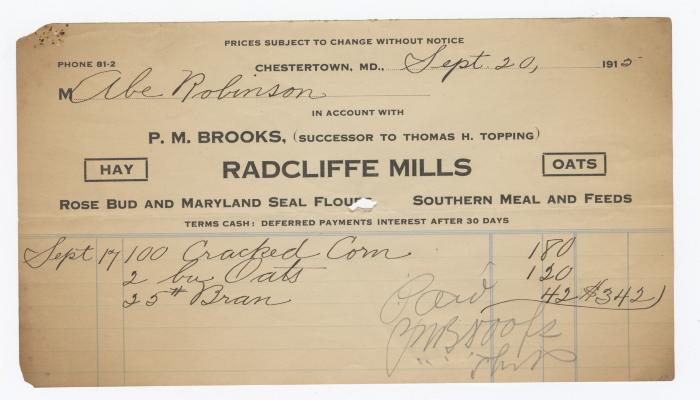 PRICES SUBJECT TO CHANGE WITHOUT NOTICE
PHONE 81-2
CHESTERTOWN, MD., Sept. 20, 1915
M Abe Robinson
IN ACCOUNT WITH
P. M. BROOKS, (SUCCESSOR TO THOMAS H. TOPPING)
HAY RADCLIFFE MILLS OATS
ROSE BUD AND MARYLAND SEAL FLOUR SOUTHERN MEAL AND FEEDS
TERMS CASH: DEFERRED PAYMENTS INTEREST AFTER 30 DAYS
Sept 17 100 Cracked Corn 180
2 bu Oats 120
25# Bran 42 $342
Paid
PMBrooks